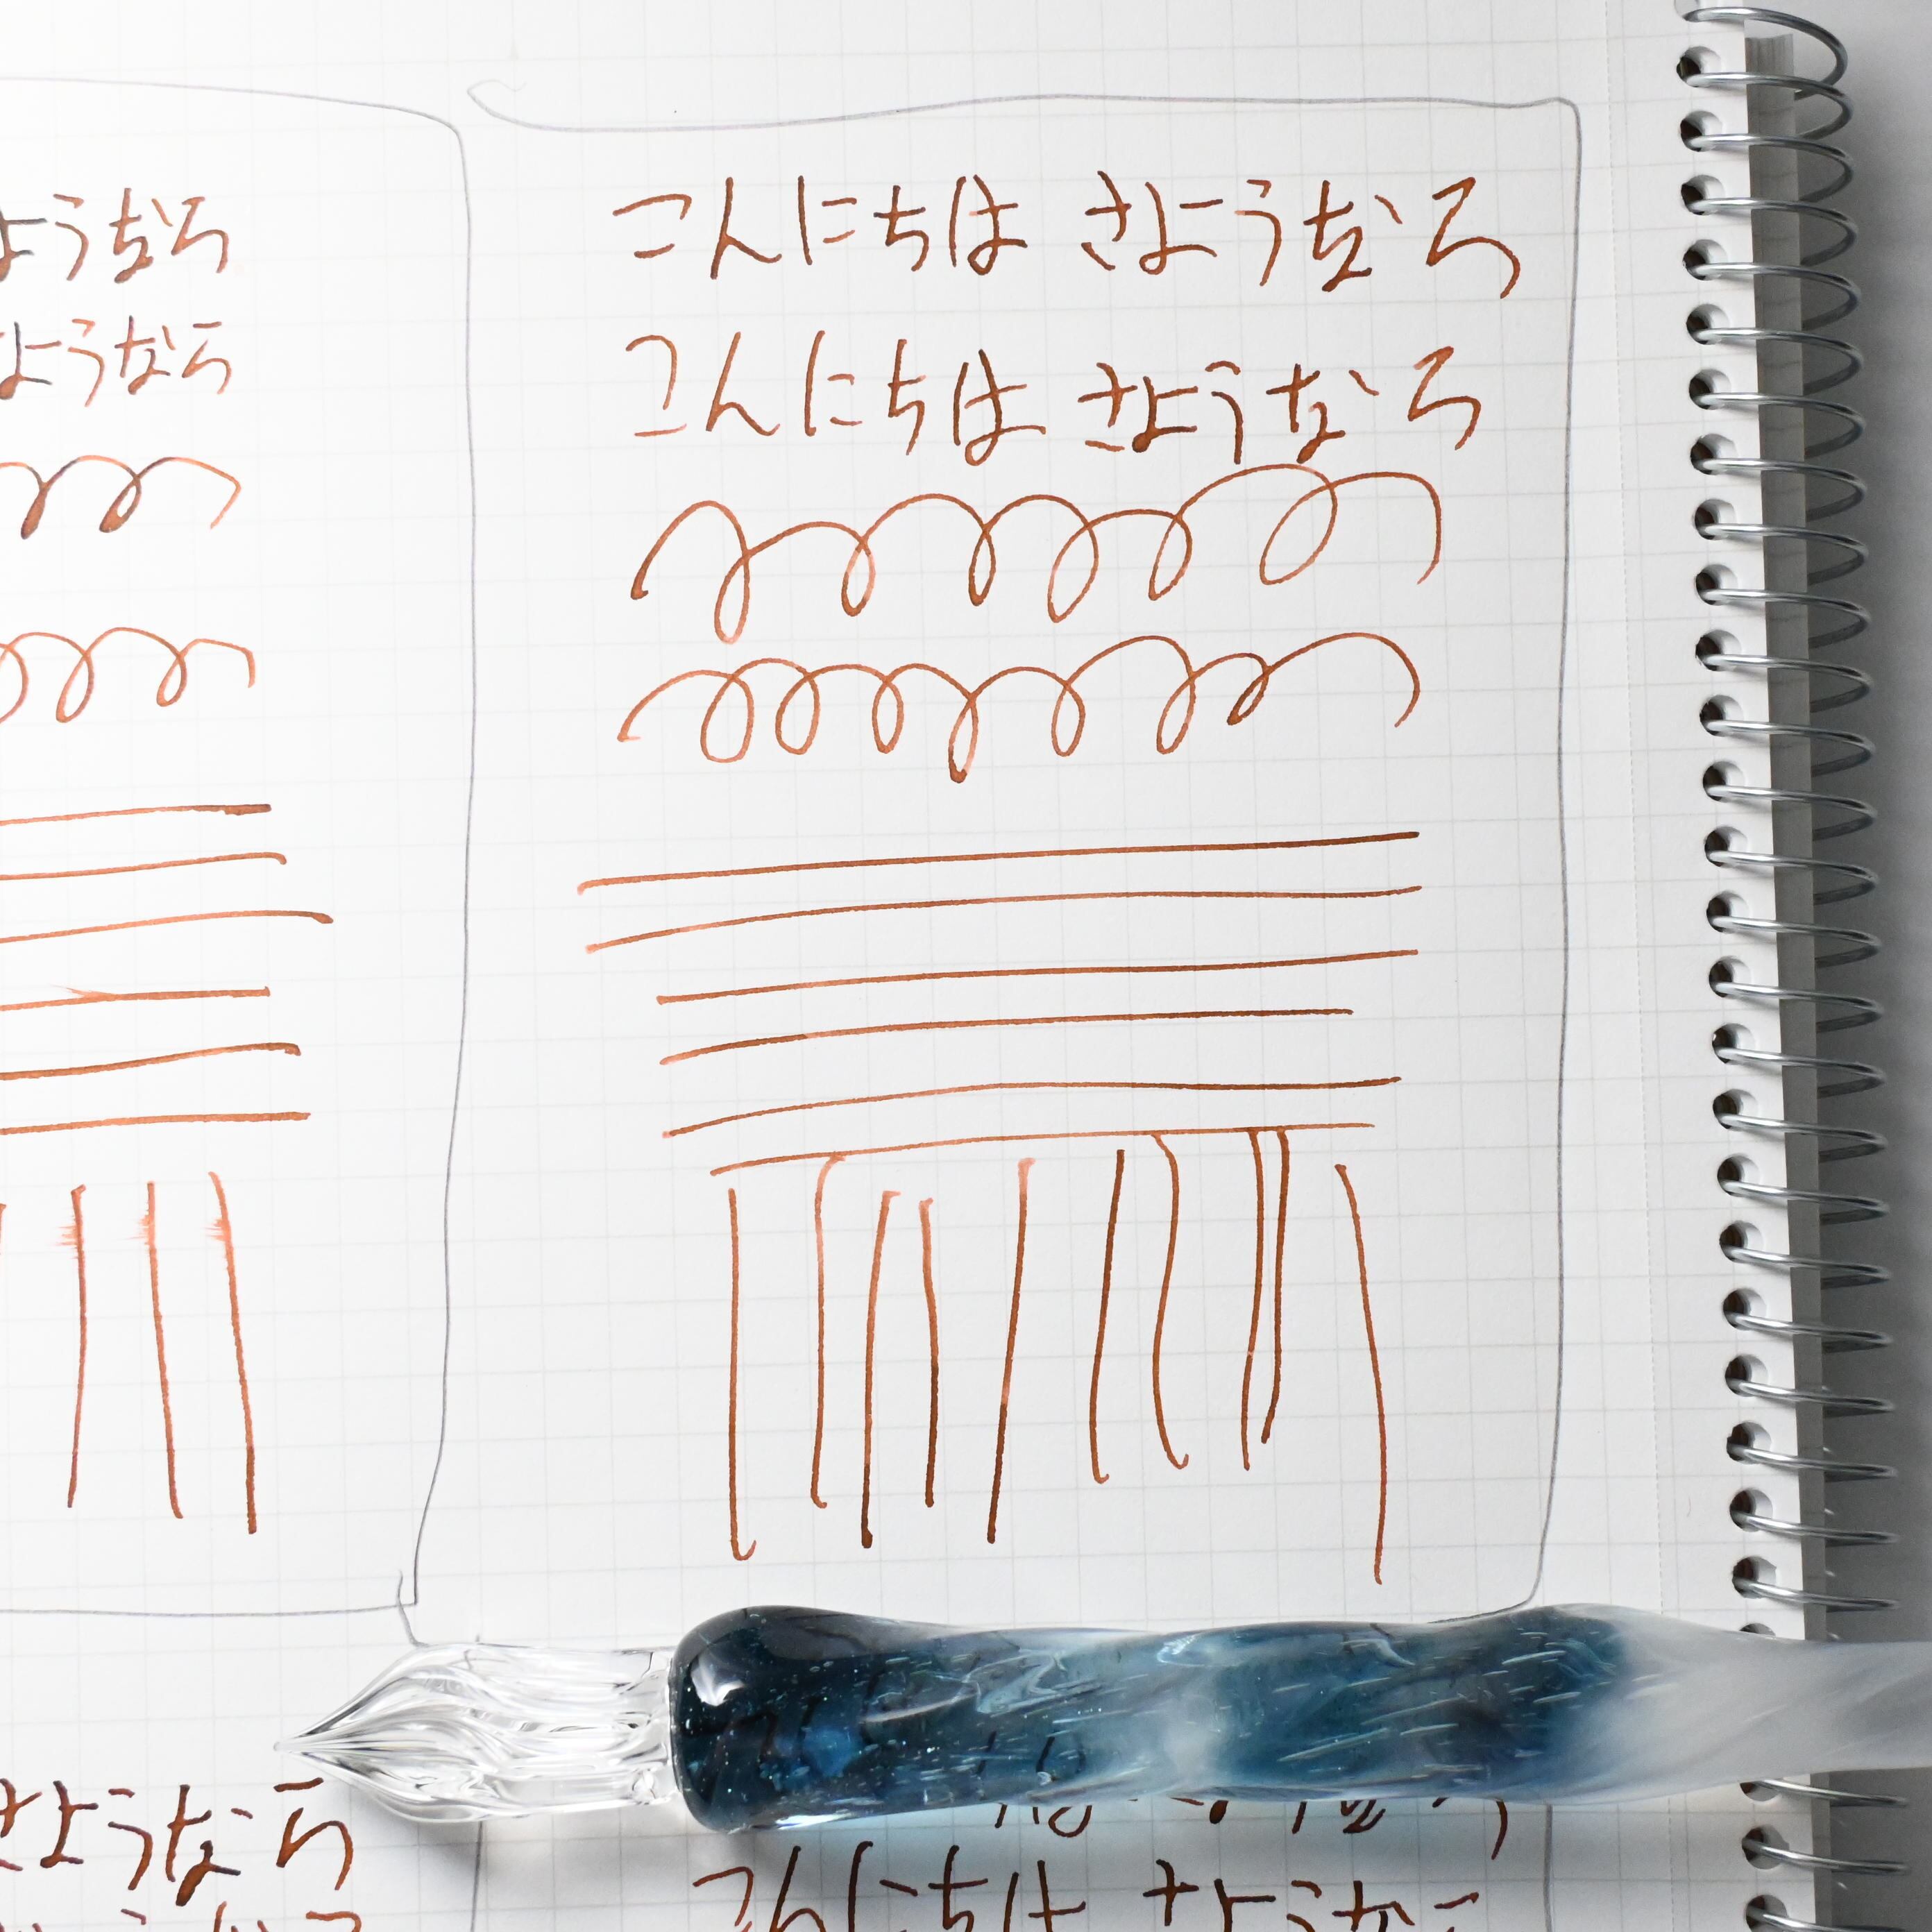 ようなら
ようなら
こんにちは さようなら
こんにちは さようなら
さようなら
こんにちは さようなら